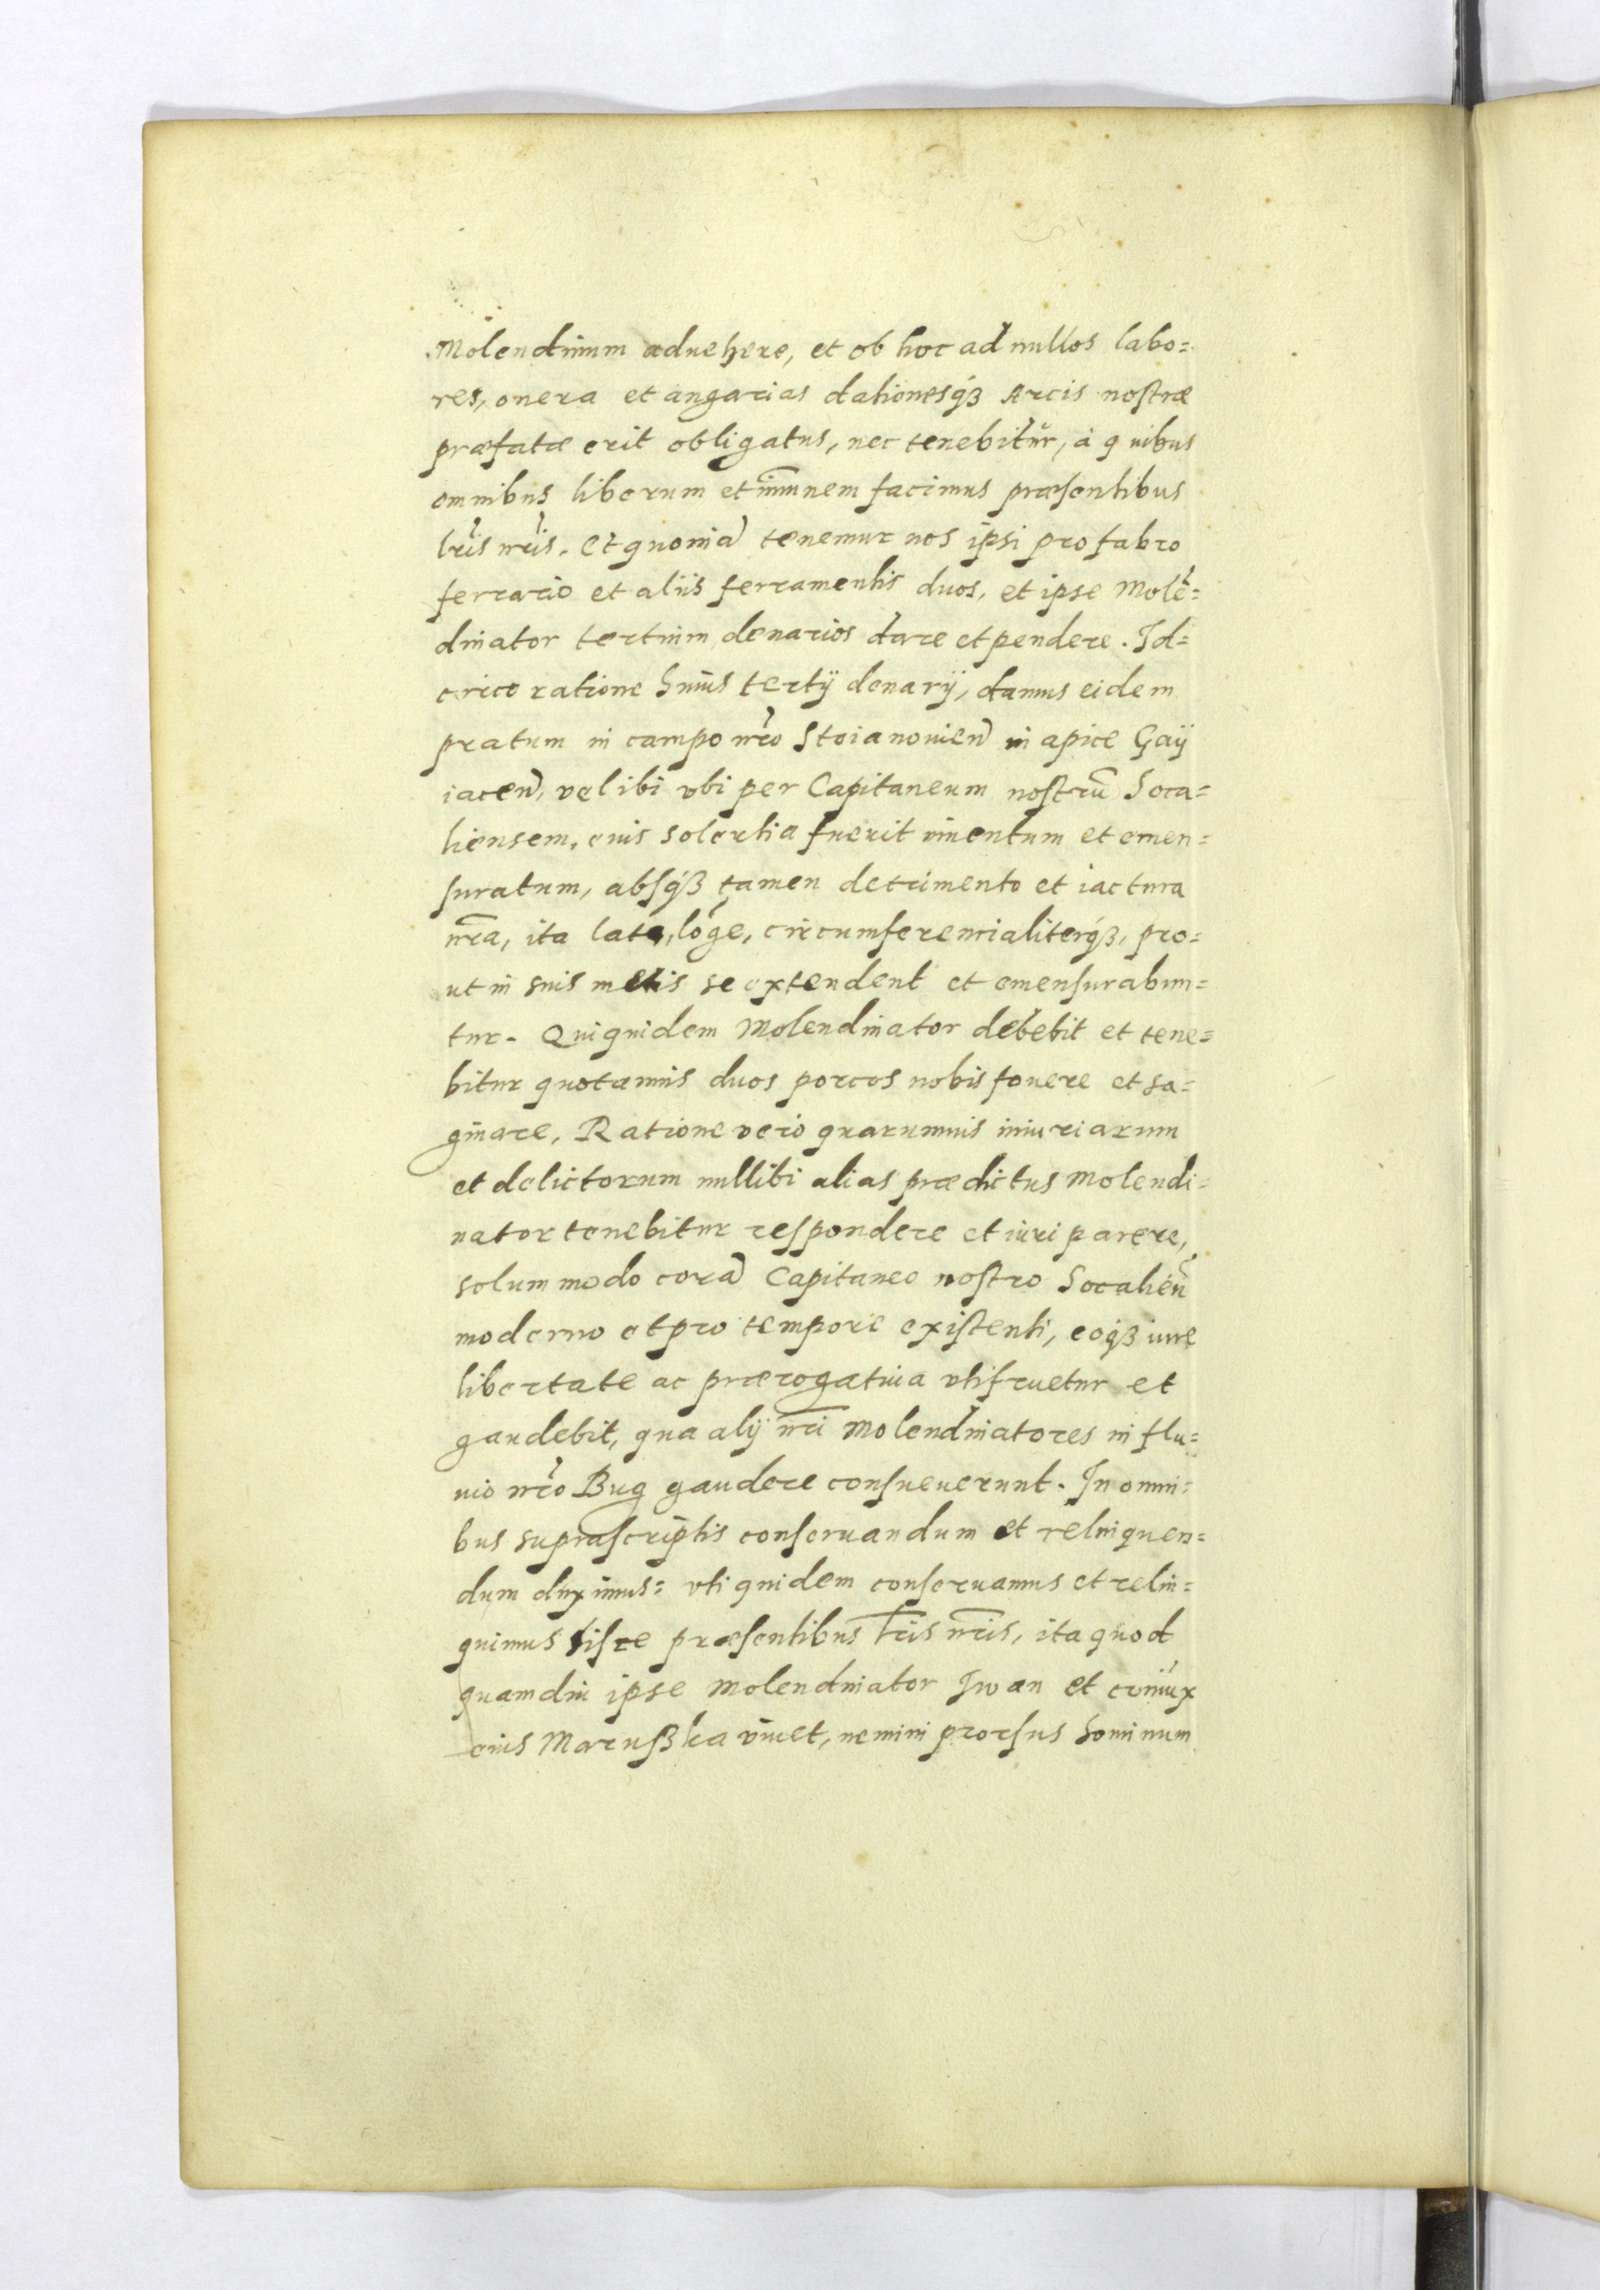 Molendinum aduehere, et ob hoc ad nullos labo=
res, onera et angarias dationesqꝫ Arcis nostræ
præfatæ erit obligatus, nec tenebitur, à quibus
omnibus liberum et im̅unem facimus præsentibus
lr̃is nr̃is. Et quoniã tenemur nos ipsi pro fabro
ferrario et aliis ferramentis duos, et ipse Molẽ=
dinator tertium denarios dare et pendere. Id=
circo ratione huius tertij denarij, damus eidem
pratum in campo nr̃o Stoianouien̄ in apice Gaij
iacen̄, vel ibi vbi per Capitaneum nostrũ Soca=
liensem, eius solertia fuerit inuentum et emen=
suratum, absqꝫ tamen detrimento et iactura
nr̃a, ita late, lõge, circumferencialiterqꝫ, pro=
ut in suis metis se extendent et emensurabun=
tur. Qui quidem Molendinator debebit et tene=
bitur quotannis duos porcos nobis fouere et sa=
ginare, Ratione vero quarumuis iniuriarum
et delictorum nullibi alias prædictus Molendi=
nator tenebitur respondere et iuri parere,
solummodo corã Capitaneo nostro Socalien̄
moderno et pro tempore existenti, eoqꝫ iure
libertate ac prærogatiua vtifruetur et
gaudebit, qua alij nr̃i Molendinatores in flu=
uio nr̃o Bug gaudere consueuerunt. In omni=
bus suprascriptis conseruandum et relinquen=
dum duximus: vti quidem conseruamus et relin=
quimus hisce præsentibus lr̃is nr̃is, ita quod
quamdiu ipse Molendinator Iwan et coniux
eius Marußka viuet, nemini prorsus hominum